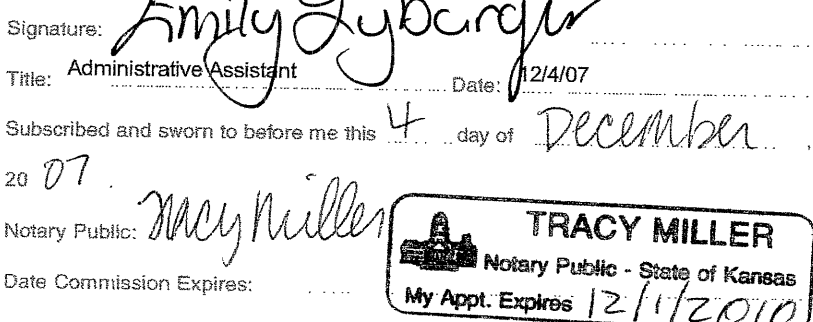 Signature: Emily Lybarger
Title: Administrative Assistant Date: 12/4/07
Subscribed and sworn to before me this 4 day of December ,
20 07 .
Notary Public: Tracy Miller
Date Commission Expires:
TRACY MILLER
Notary Public - State of Kansas
My Appt. Expires 12/1/2010